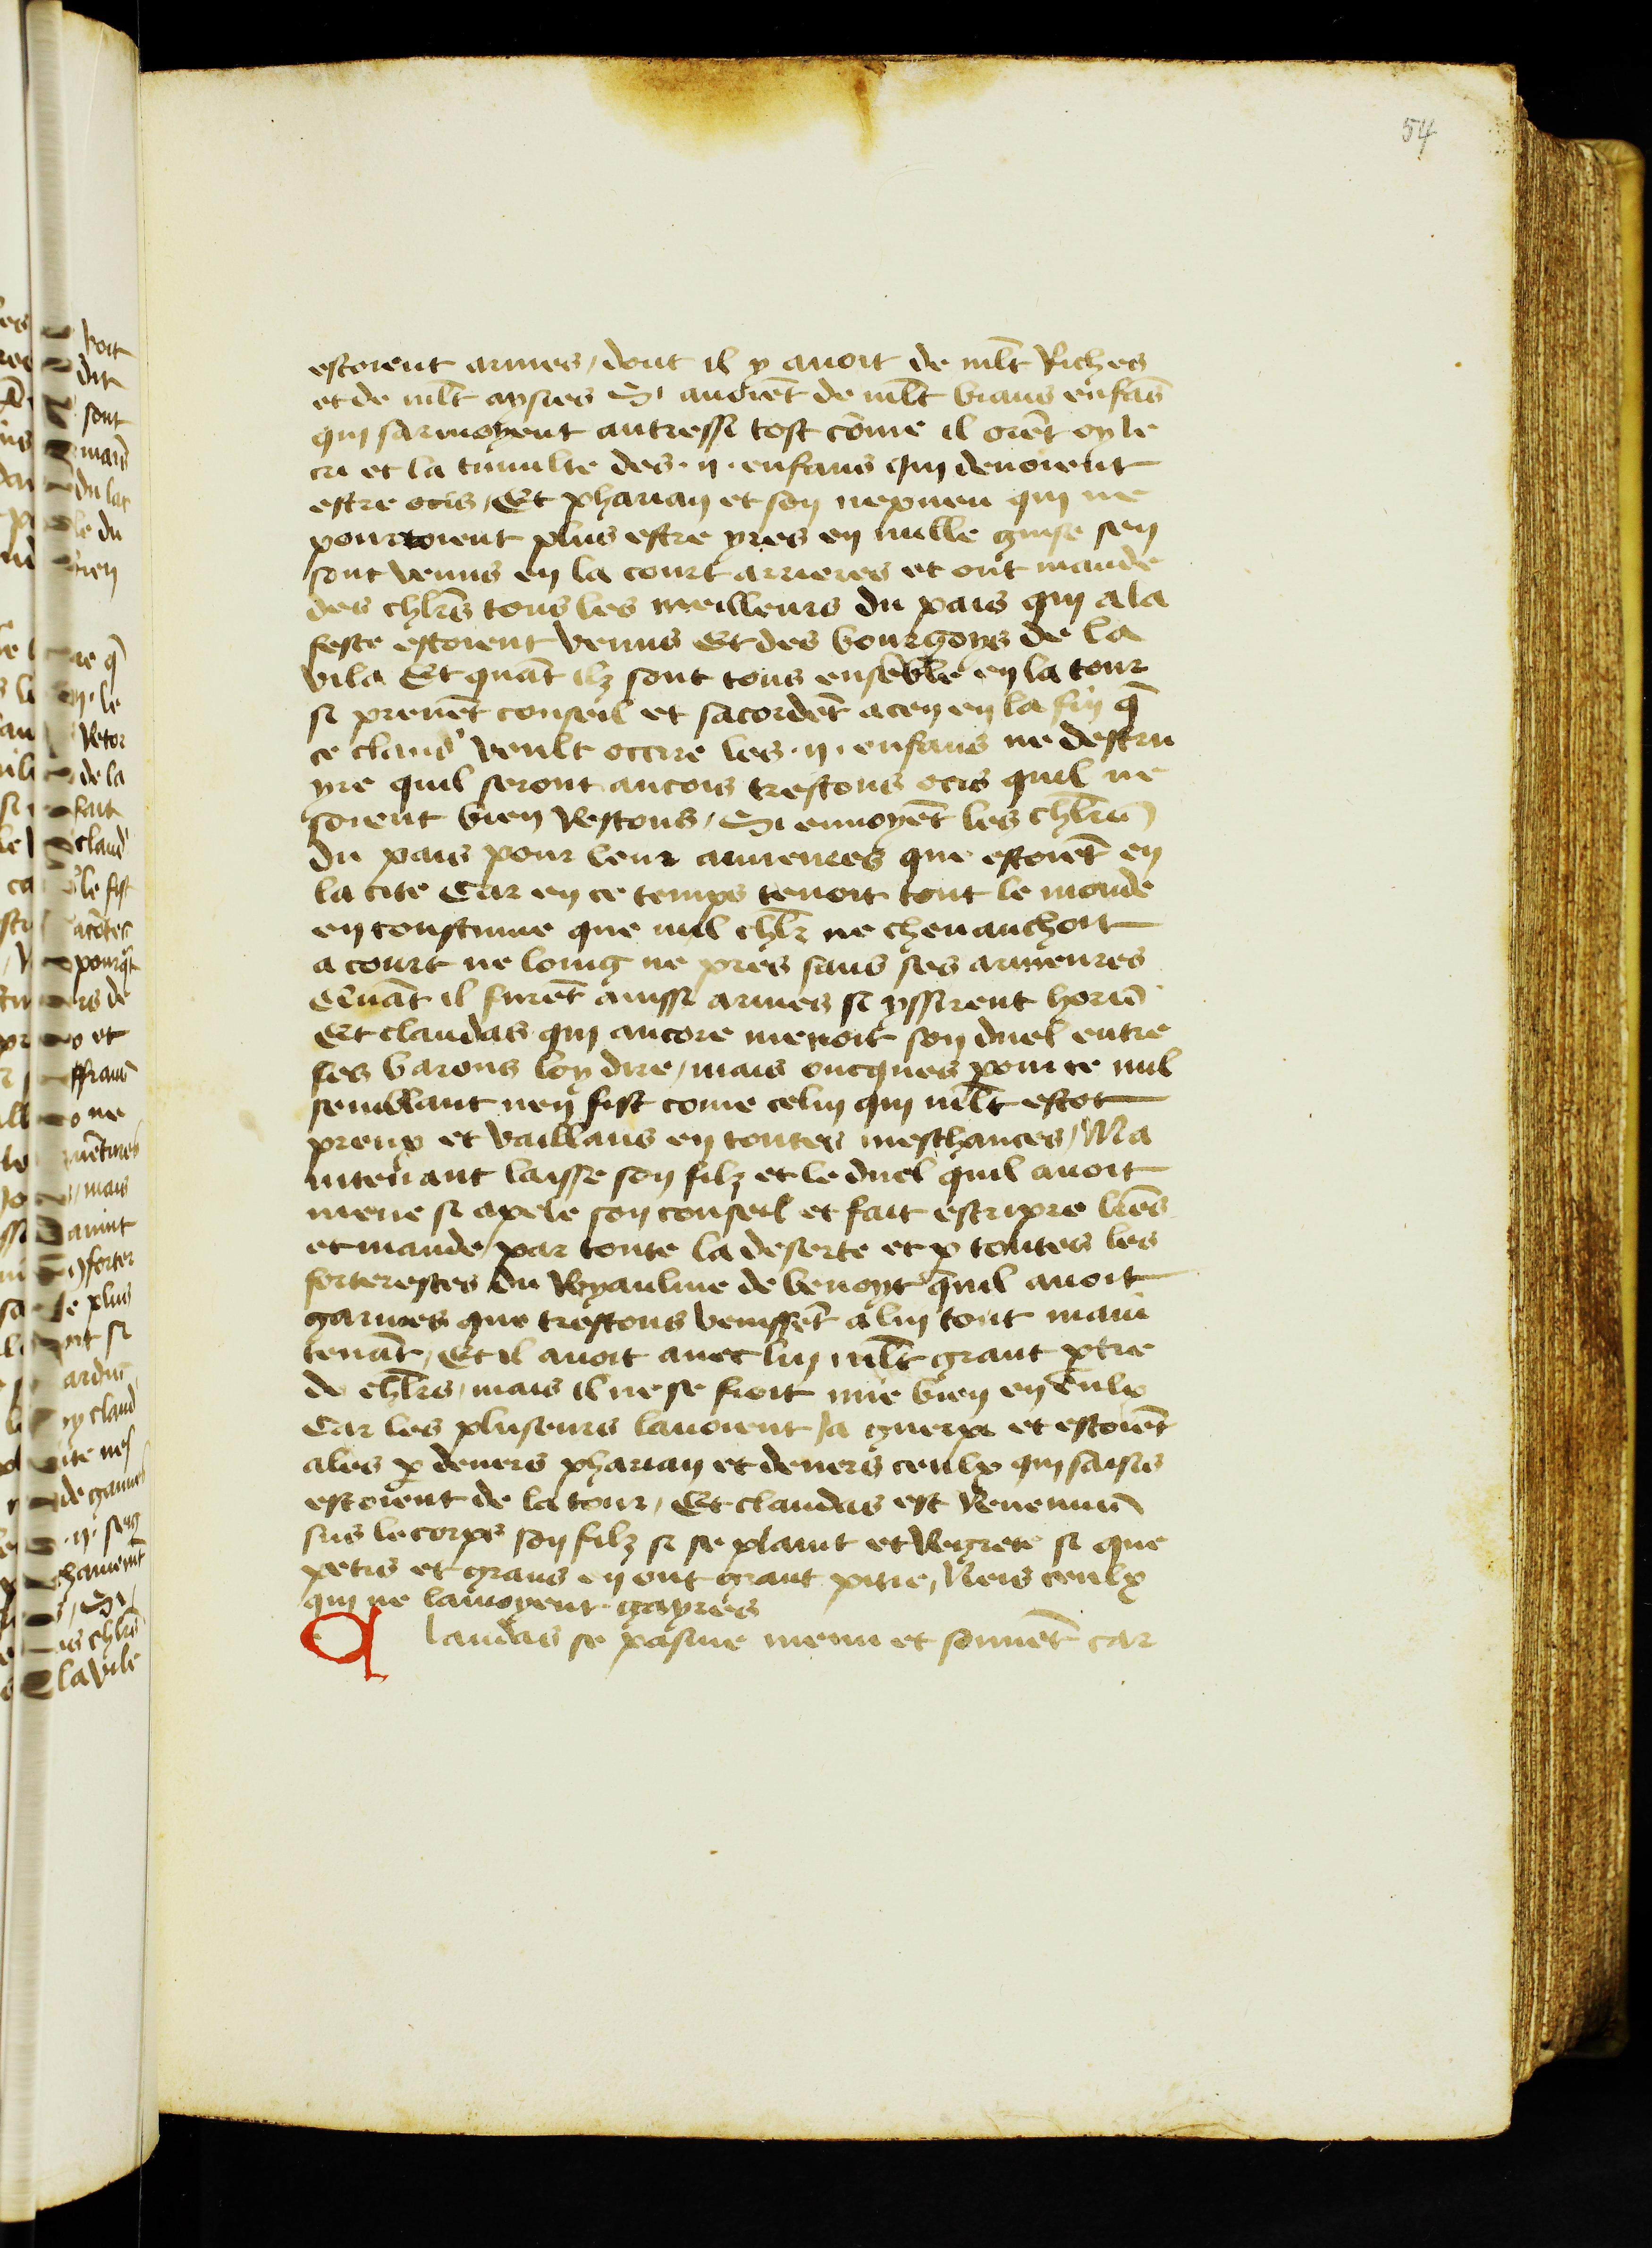 54
estoient armes / dont il y auoit de mlt Riches
et de mlt aysies Si auoiēt de mlt biaus enfās
qui sarmoyent autressi tost cōme il oiēt oy le
cri et la tumulte des .ii. enfans qui deuoient
estre ocis / Et pharian et son nepueu qui ne
pourroient plus estre yres en nulle guise sen
sont venus en la court arrieres et ont mande
des chlrs tous les meilleurs du pais qui a la
feste estoient venus Et des bourgoys de la
vila Et quāt ilz sont tous ensēble en la tour
si prenēt conseil et sacordēt a cen en la fin q̄
ce claud' veult occire les .ii. enfans ne destru
yre quil seront ancois trestous ocis quil ne
soient bien Restous / Si enuoyēt les chlrs
du pais pour leur armeures que estoiēt en
la cite Car en ce temps tenoit tout le monde
en coustume que nul chlr ne cheuauchoit
a court ne loing ne pres sans ses armeures
Quāt il furēt ainssi armes si yssirent hors
Et claudas qui ancore menoit son duel entre
ses barons loy dire / mais oncques pour ce nul
semblant nen fist come celui qui mlt estot
preux et vaillans en toutes mesthances / Ma
intenant laisse son filz et le duel quil auoit
mene si apele son conseil et fait escripre lrēs
et mande / par toute la deserte et p toutes les
forterestes du Royaulme de benoyt quil auoit
garnies que trestous venissēt a lui tout main
tenāt / Et il auoit auec lui mlt grant ptie
de chlrs / mais il ne se fioit mie bien en eulx
Car les pluseurs lauoient ja guerpi et estoiēt
ales p deuers pharian et deuers ceulx qui saisis
estoient de la tour / Et claudas est Reuenuu
sus le corps son filz si se plaint et Regrete si que
petis et grans en ont grant pitie / Neis ceulx
qui ne lamoyent gayres
Claudas se pasme menu et souuēt car